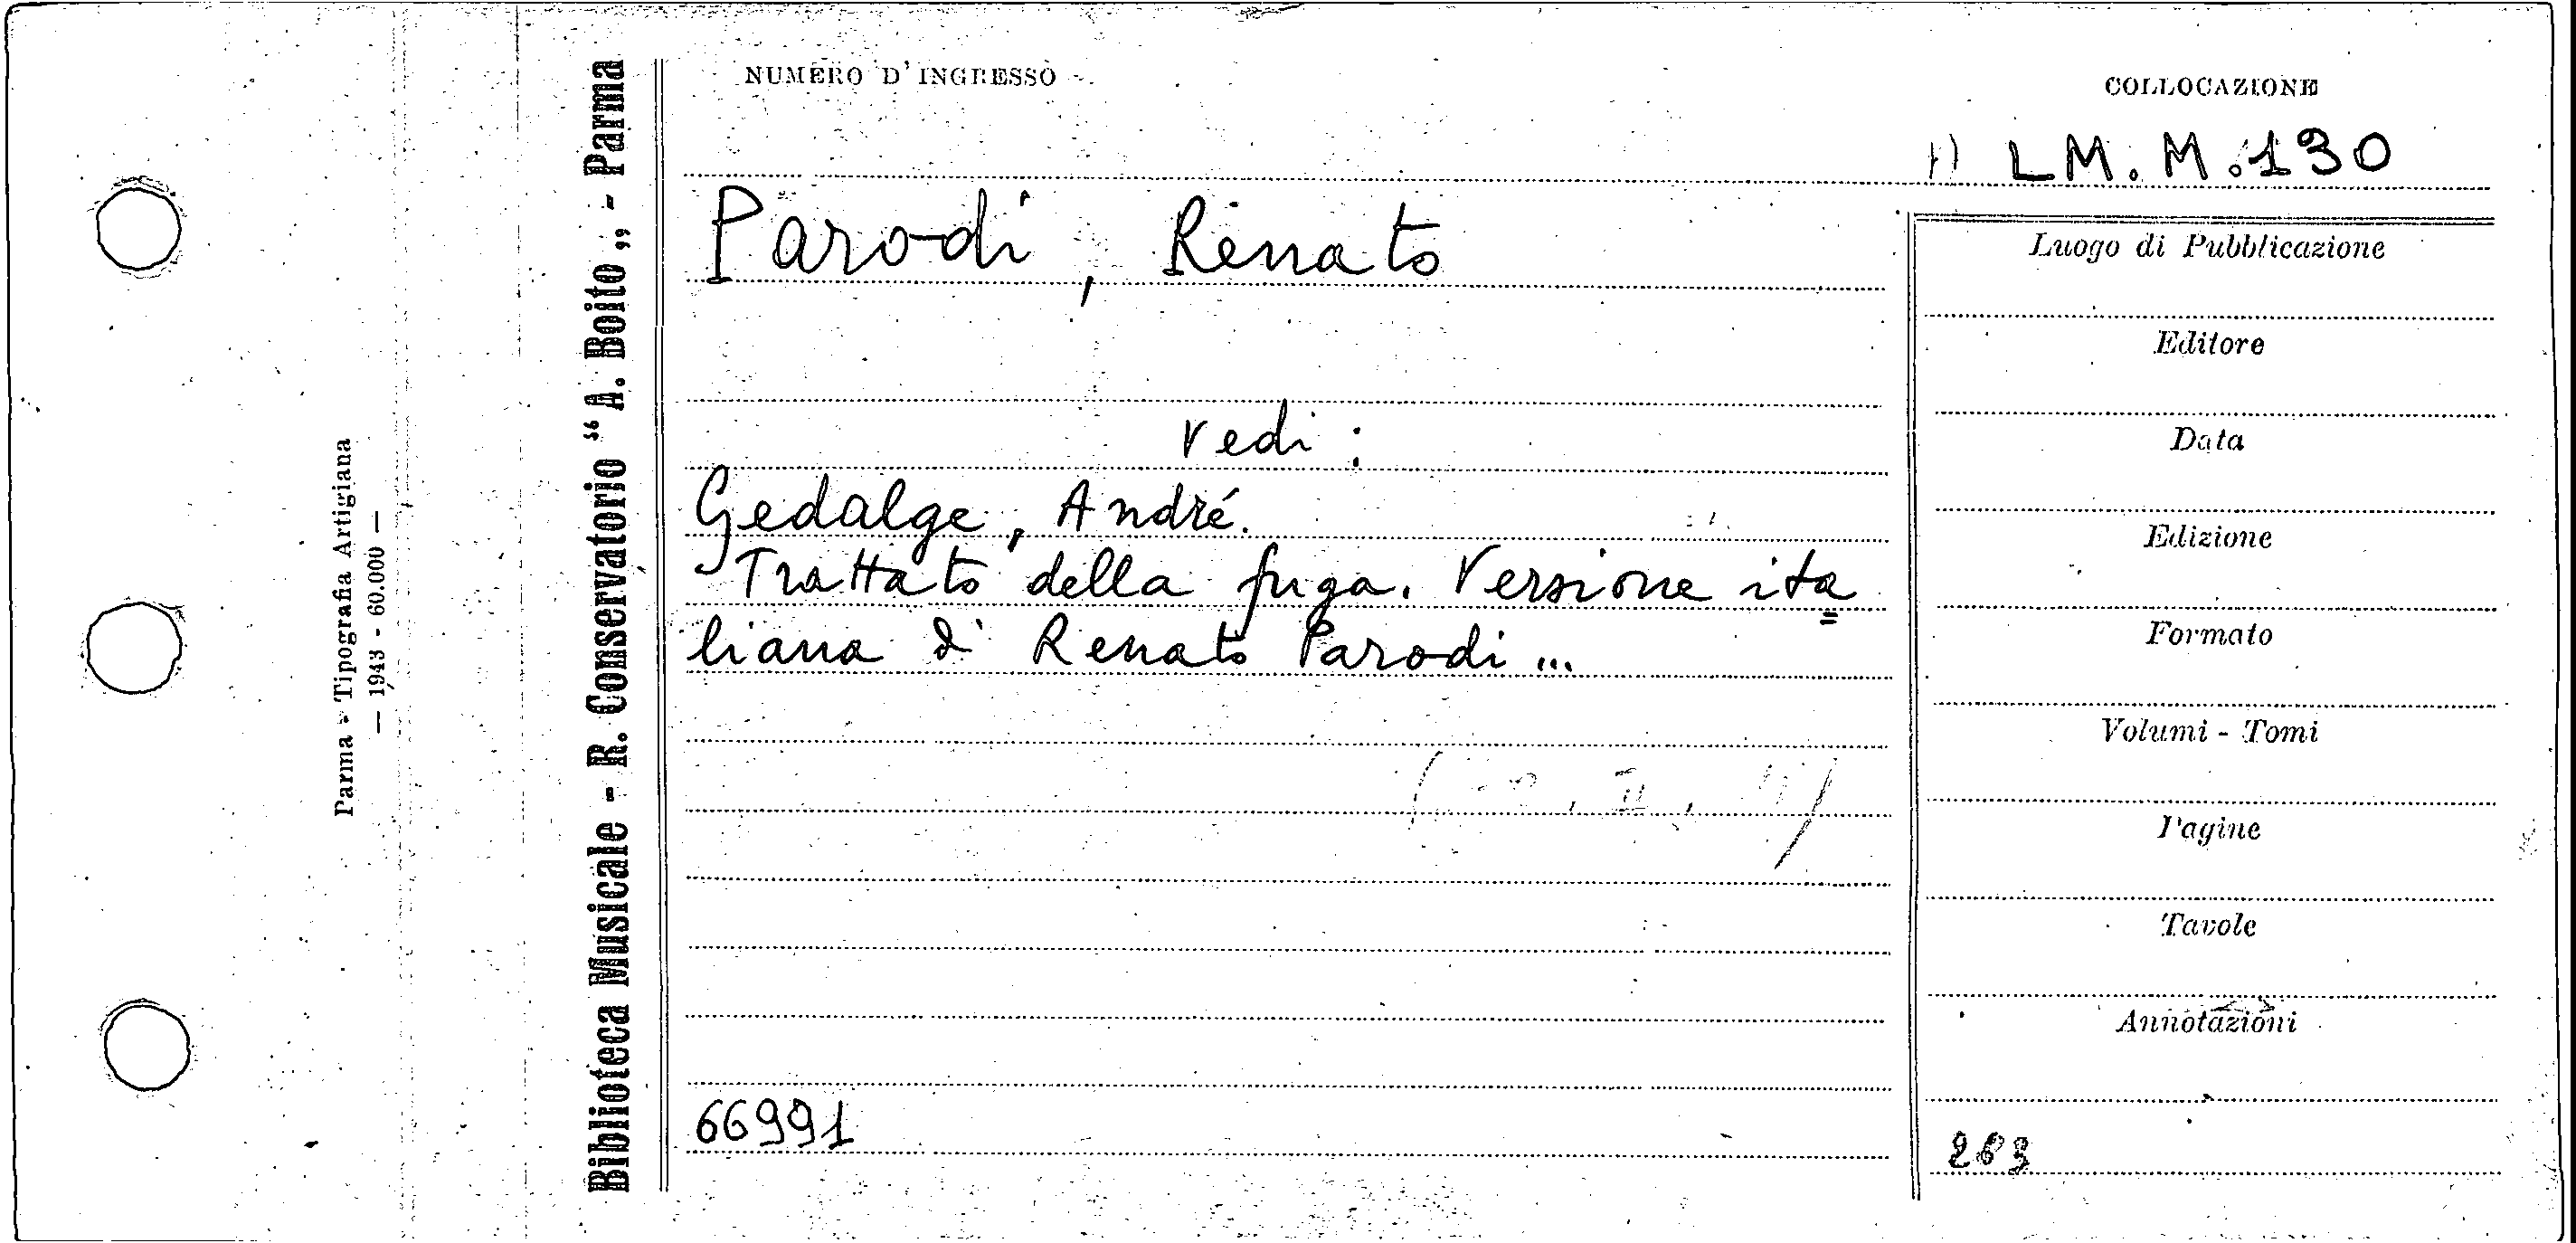 NUMERO D'INGRESSO
COLLOCAZIONE
1) LM. M. 130
Parodi, Renato
vedi :
Gedalge, André.
Trattato della fuga. Versione ita=
liana di Renato Parodi ...
66991
Luogo di Pubblicazione
Editore
Data
Edizione
Formato
Volumi - Tomi
Pagine
Tavole
Annotazioni
Biblioteca Musicale - R. Conservatorio “A. Boito„ - Parma
Parma - Tipografia Artigiana
— 1943 - 60.000 —